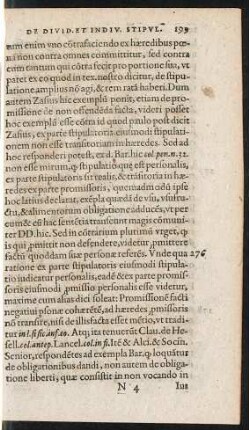 DE DIVID. ET INDIV. STIPVL. 199
eum enim vno cōtrafaciendo ex hæredibus pœ-
na non contra omnes committitur, sed contra
eum tantum qui cōtra fecit pro portione sua, vt
patet ex eo quod in tex. nostro dicitur, de stipu-
latione amplius nō agi, & rem rata haberi. Dum
autem Zasius hic exemplū ponit, etiam de pro-
missione de non offendēda facta, videri posset
hoc exemplū esse cōtra id quod paulo post dicit
Zasius, ex parte stipulatoris eiusmodi stipulati-
onem non esse transitoriam in hæredes. Sed ad
hoc responderi potest, ex d. Bar. hic col. pen. n. 12.
non esse à stipulatiō quę est personalis,
ex parte stipulatoris sit realis, & trāsitoria in hæ-
redes ex parte promissoris, quemadmodū ipse
hic latius declarat, exēpla quædā de viu, viufru-
ctu, & alimentorum obligatione addūcēs, vt per
eum & eū hac sentētia transeunt magis cōmuni-
ter DD. hic. Sed in cōtrarium plutimū vrget, ꝙ
is qui promittit non defendere, videtur promittere
factū quoddam suæ personæ referēs. Vnde qua 276
ratione ex parte stipulatoris eiusmodi stipula-
tio iudicatur personalis, eadē & ex parte promis-
soris eiusmodi promissio personalis esse videtur,
maxime cum alias dici soleat: Promissionē facti
negatiui psonæ cohęrētē, ad hæredes promissoris
transitoriā, nisi de illis facta esset mētio, vt tradi-
Atq; ita tenuerūt Clau. de
Itē & Alci. & Socin.
Senior, respondētes ad exempla Bar. ꝙ loquūtur
de obligationibus dandi, non autem de obliga-
tione liberti, quæ consistit in non vocando in
N 4 Ius